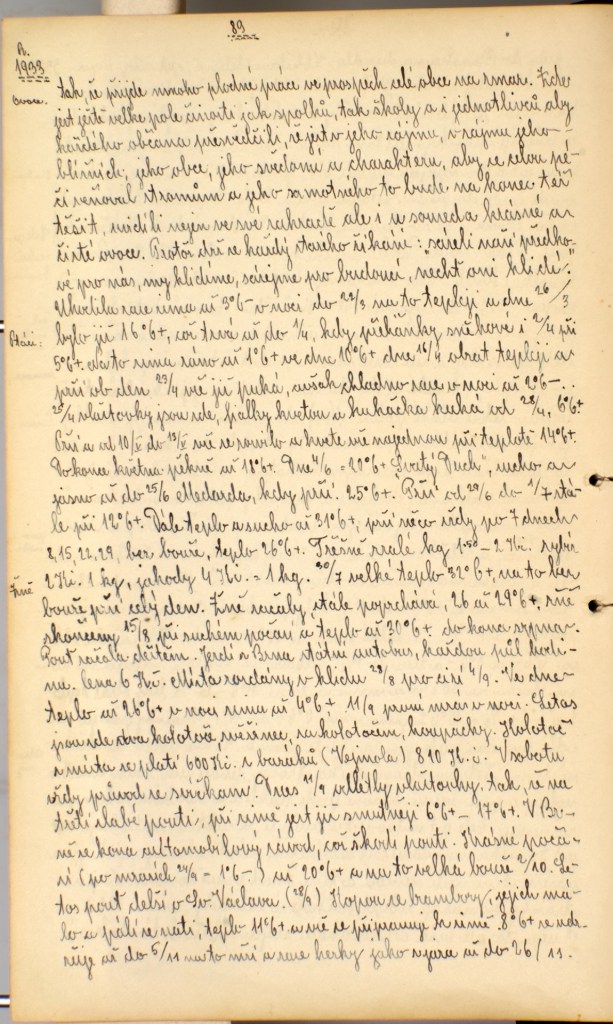 89
R. 1933
tak, že přijde mnoho plodné práce ve prospěch celé obce na zmar. Zde
ovoce.
jest ještě velké pole činosti jak spolků, tak školy a i jednotlivců aby
každého občana přesvědčili, že jest v jeho zájmu, v zájmu jeho
bližních, jeho obce, jeho svědomí a charakteru, aby se celou pé-
čí věnoval stromům a jeho samotného to bude na konec též
těšit, uvidíli nejen ve své zahradě ale i u souseda krásné a
čisté ovoce. Protož drž se každý starého říkání: "sázeli naši předko-
vé pro nás, my klidíme, sázejme pro budoucí, nechť oni klidí."
zase zima až 3°6- v noci do 22/3 na to tepleji a dne 26/3
bylo již 16°6+, což trvá až do 1/4, kdy přeháňky sněhové i 2/4 při
Ptáci:
5°6+. na to zima ráno až 1°6+ ve dne 10°6+ dne 16/4 obrat tepleji a
prší ob den 23/4 vše již puká, avšak chladno zase v noci až 2°6-..
25/4 vlaštovky jsou zde, fialky kvetou a kukačka kuká od 28/4, 6°6+
Prší a od 10/V do 13/V vše se a kvete vše najednou při teplotě 14°6+.
Do konce května pěkně až 18°6+. Dne 4/6 = 22°6+ "Svatý Duch", sucho a
jasno až do 25/6 Medarda, kdy prší. 25°6+. Prší od 29/6 do 1/7 stá-
le při 12°6+. Dále teplo a sucho až 31°6+, prší něco vždy po 7 dnech
8, 15, 22, 29, bez bouře, teplo 26°6+. Třešně zralé kg 1·50 – 2 Kč. rybíz
2 Kč. 1 kg, jahody 4 Kč. = 1 kg. 30/7 velké teplo 32°6+, na to bez
Žně
bouře prší celý den. Žně začaly, stále poprchává, 26 až 29°6+, žně
skončeny 15/8 při suchém počasí a teplo až 30°6+ do konce srpna.
Pouť začala deštěm. Jezdí z Brna státní autobus, každou půl hodi-
nu. Cena 6 Kč. Místa rozdány v klidu 28/8 pro cizí 4/9. Ve dne
teplo až 26°6+ v noci zima až 4°6+ 11/9 první mráz v noci. Letos
jsou zde dva kolotoče, zvěřinec, za kolotočem, houpačky. Kolotoč
z místa se platí 600 Kč. z baráků (Vejmola) 810 Kč. V sobotu
vždy průvod se svíčkami. Dnes 11/9 odlétly vlaštovky. tak, že na
třetí slabé pouti, při zimě jest již smutněji 6°6+ – 17°6+. V Br-
ně se koná automobilový závod, což škodí pouti. Krásné počá-
sí (po mrazích 24/9 = 1°6-) až 20°6+ a na to velká bouře 2/10. Le-
tos pouť delší o Sv. Václava. (28/9) Kopou se brambory, jejich má-
lo a pálí se nati, teplo 11°6+ a vše se připravuje k zimě. 8°6+ se udr-
žuje až do 5/11 na to mží a zase hezky jako z jara až do 26/11.